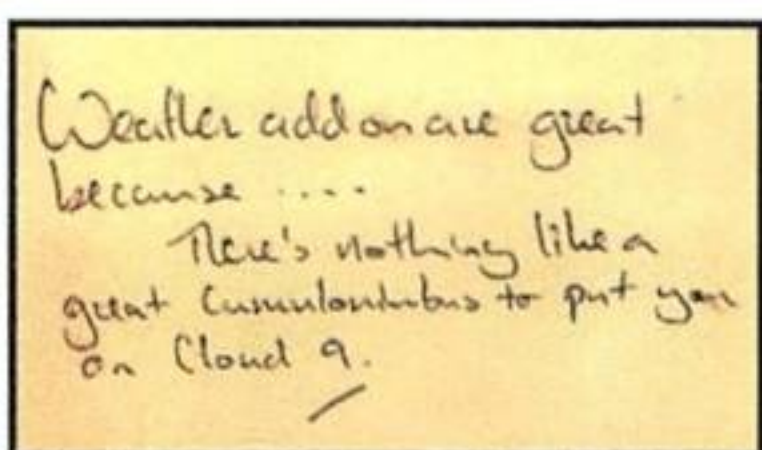 Weather add on are great
because ....
There's nothing like a
great Cumulonimbus to put you
on Cloud 9.